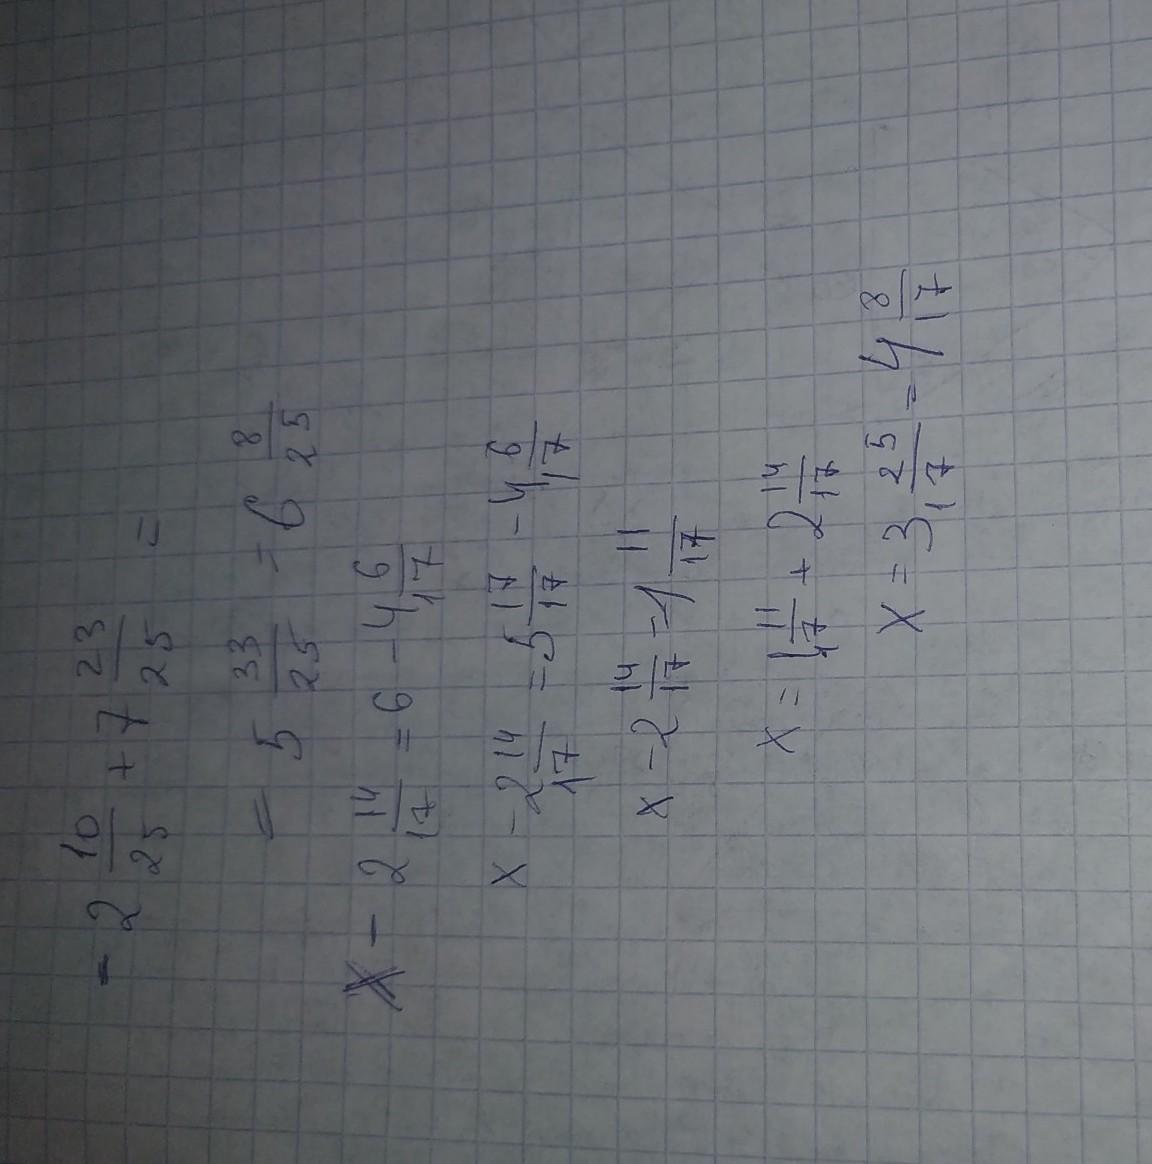 = 2 10/25 + 7 23/25 =
= 5 33/25 = 6 8/25
x - 2 14/17 = 6 - 4 6/17
x - 2 14/17 = 5 17/17 - 4 6/17
x - 2 14/17 = 1 11/17
x = 1 11/17 + 2 14/17
x = 3 25/17 = 4 8/17